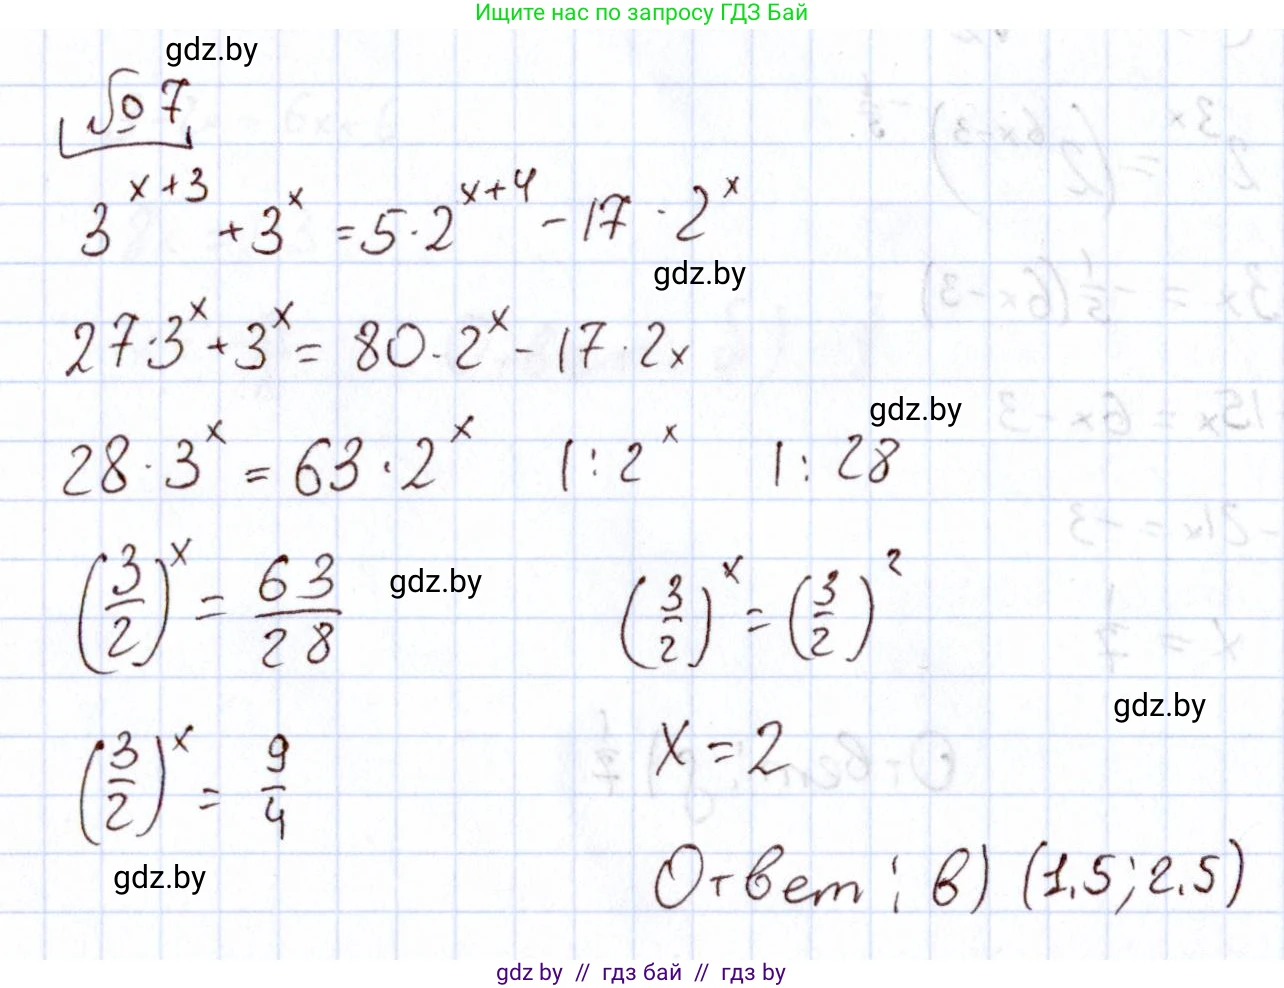 Ищите нас по запросу ГДЗ Бай
gdz.by
№ 7
3^(x+3) + 3^x = 5·2^(x+4) − 17·2^x
gdz.by
27·3^x + 3^x = 80·2^x − 17·2x
gdz.by
28·3^x = 63·2^x |:2^x |:28
(3/2)^x = 63/28
gdz.by
(3/2)^x = 9/4
gdz.by
(3/2)^x = (3/2)^2
gdz.by
x = 2
Ответ: в) (1,5; 2,5)
gdz by // гдз бай // гдз by